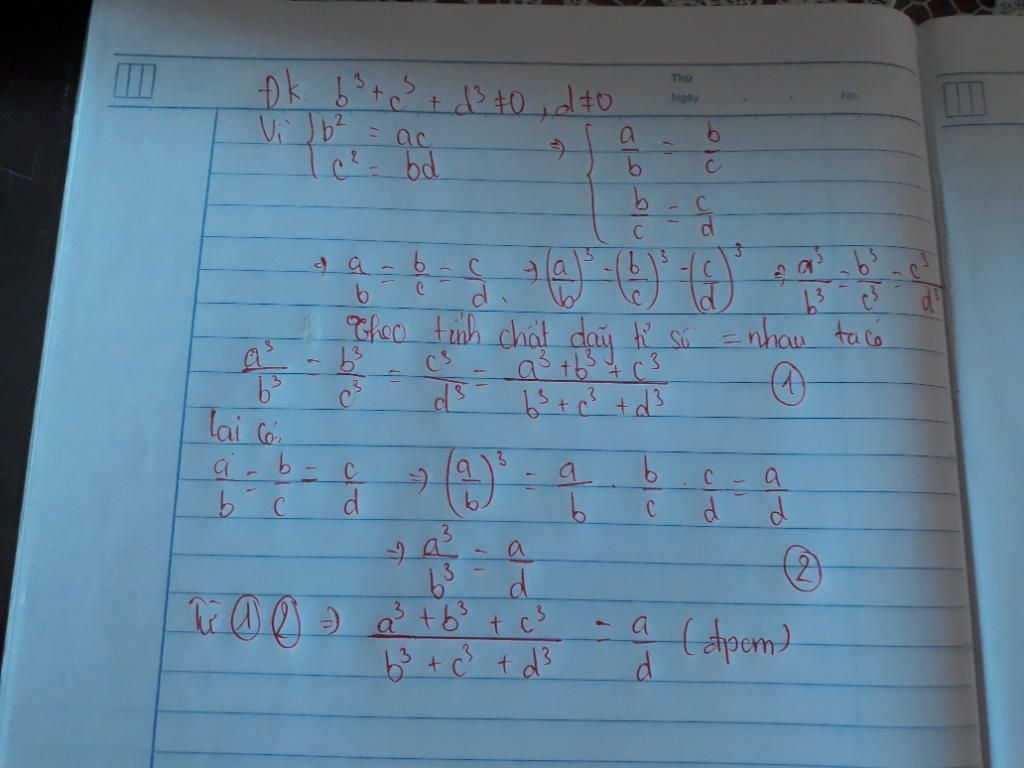 Thứ
Ngày . . No.
Đk b³ + c³ + d³ ≠ 0, d ≠ 0
Vì { b² = ac ⇒ { a/b = b/c
c² = bd b/c = c/d
⇒ a/b = b/c = c/d. ⇒ (a/b)³ = (b/c)³ = (c/d)³ ⇒ a³/b³ = b³/c³ = c³/d³
Theo tính chất dãy tỉ số = nhau ta có
a³/b³ = b³/c³ = c³/d³ = (a³ + b³ + c³)/(b³ + c³ + d³) ①
Lại có:
a/b = b/c = c/d ⇒ (a/b)³ = a/b . b/c . c/d = a/d
⇒ a³/b³ = a/d ②
Từ ① ② ⇒ (a³ + b³ + c³)/(b³ + c³ + d³) = a/d (đpcm)